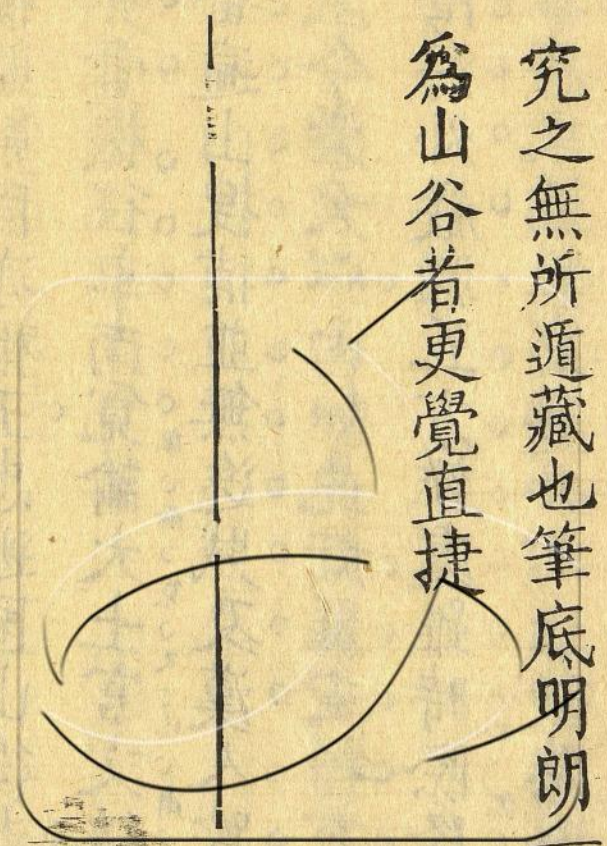 究之無所遁藏也筆底明朗
爲山谷者更覺直捷